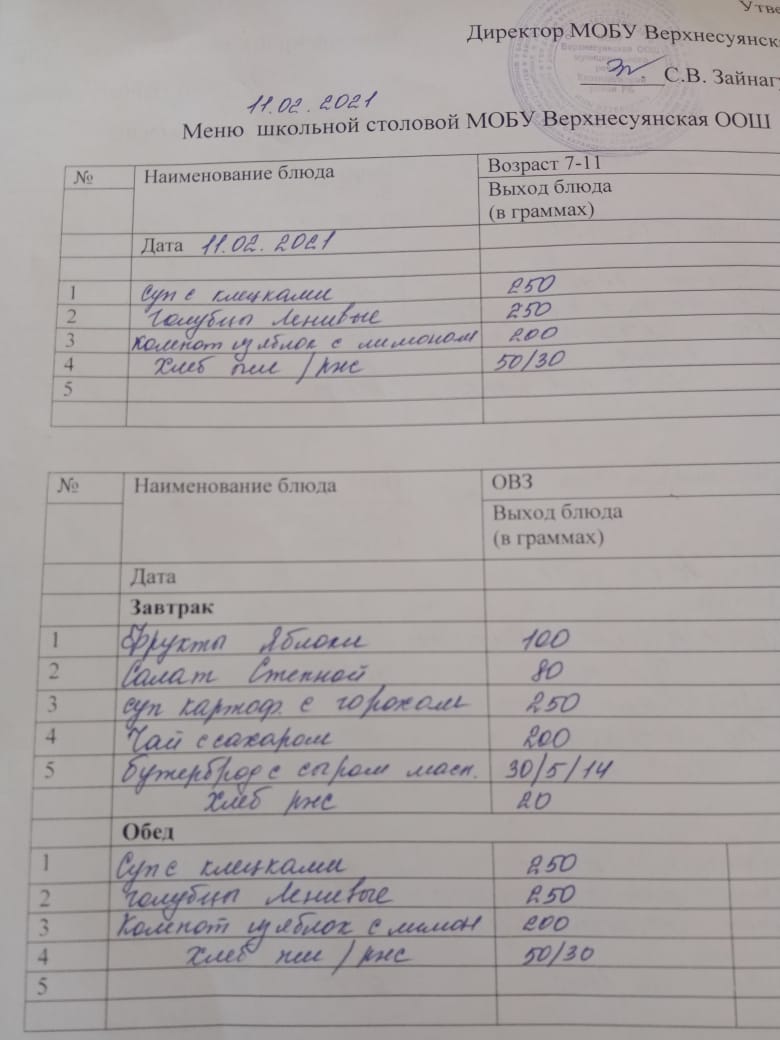 Утве
Директор МОБУ Верхнесуянск
С.В. Зайнаг
11.02.2021
Меню школьной столовой МОБУ Верхнесуянская ООШ
№ Наименование блюда Возраст 7-11
Выход блюда
(в граммах)
Дата 11.02.2021
1 Суп с клецками 250
2 Голубцы Ленивые 250
3 Компот из яблок с лимоном 200
4 Хлеб пш / ржс 50/30
5
№ Наименование блюда ОВЗ
Выход блюда
(в граммах)
Дата
Завтрак
1 Фрукты Яблоки 100
2 Салат Степной 80
3 суп картоф. с горохом 250
4 Чай с сахаром 200
5 бутерброд с сыром масл. 30/5/14
Хлеб ржс 20
Обед
1 Суп с клецками 250
2 голубцы Ленивые 250
3 Компот из яблок с лимон 200
4 Хлеб пш / ржс 50/30
5